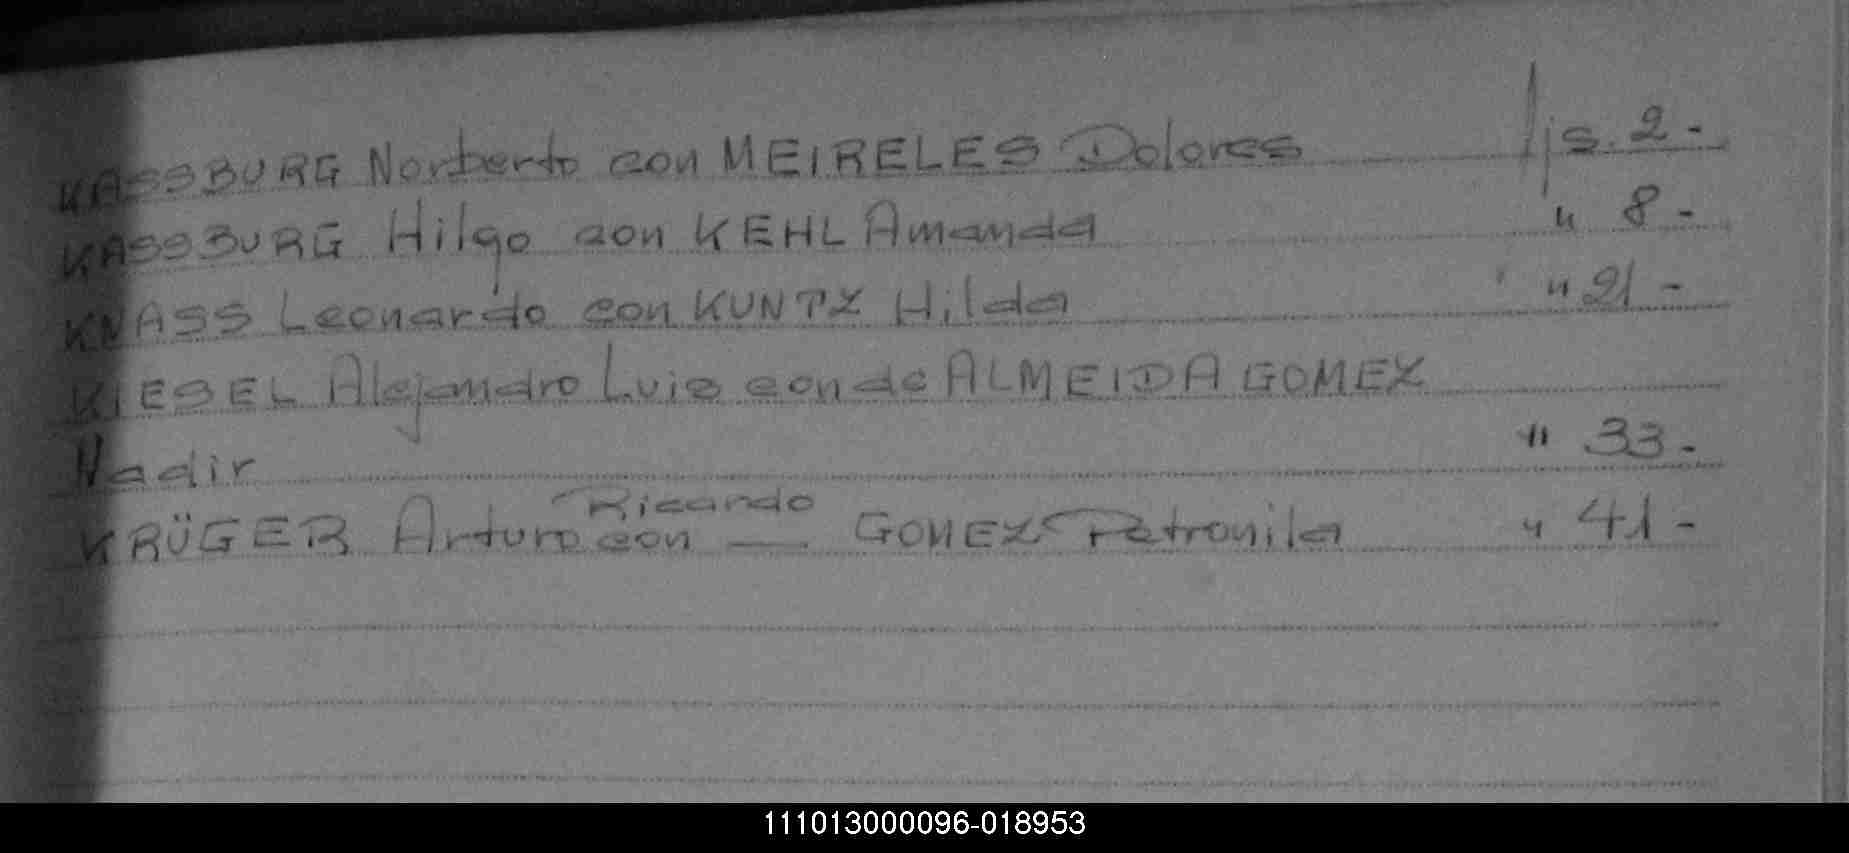 KASSBURG Norberto con MEIRELES Dolores fjs. 2-
KASSBURG Hilgo con KEHL Amanda " 8-
KNASS Leonardo con KUNTZ Hilda " 21-
KIESEL Alejandro Luis con de ALMEIDA GOMEZ
Nadir " 33-
Ricardo
KRÜGER Arturo con — GOMEZ Petronila " 41-
111013000096-018953